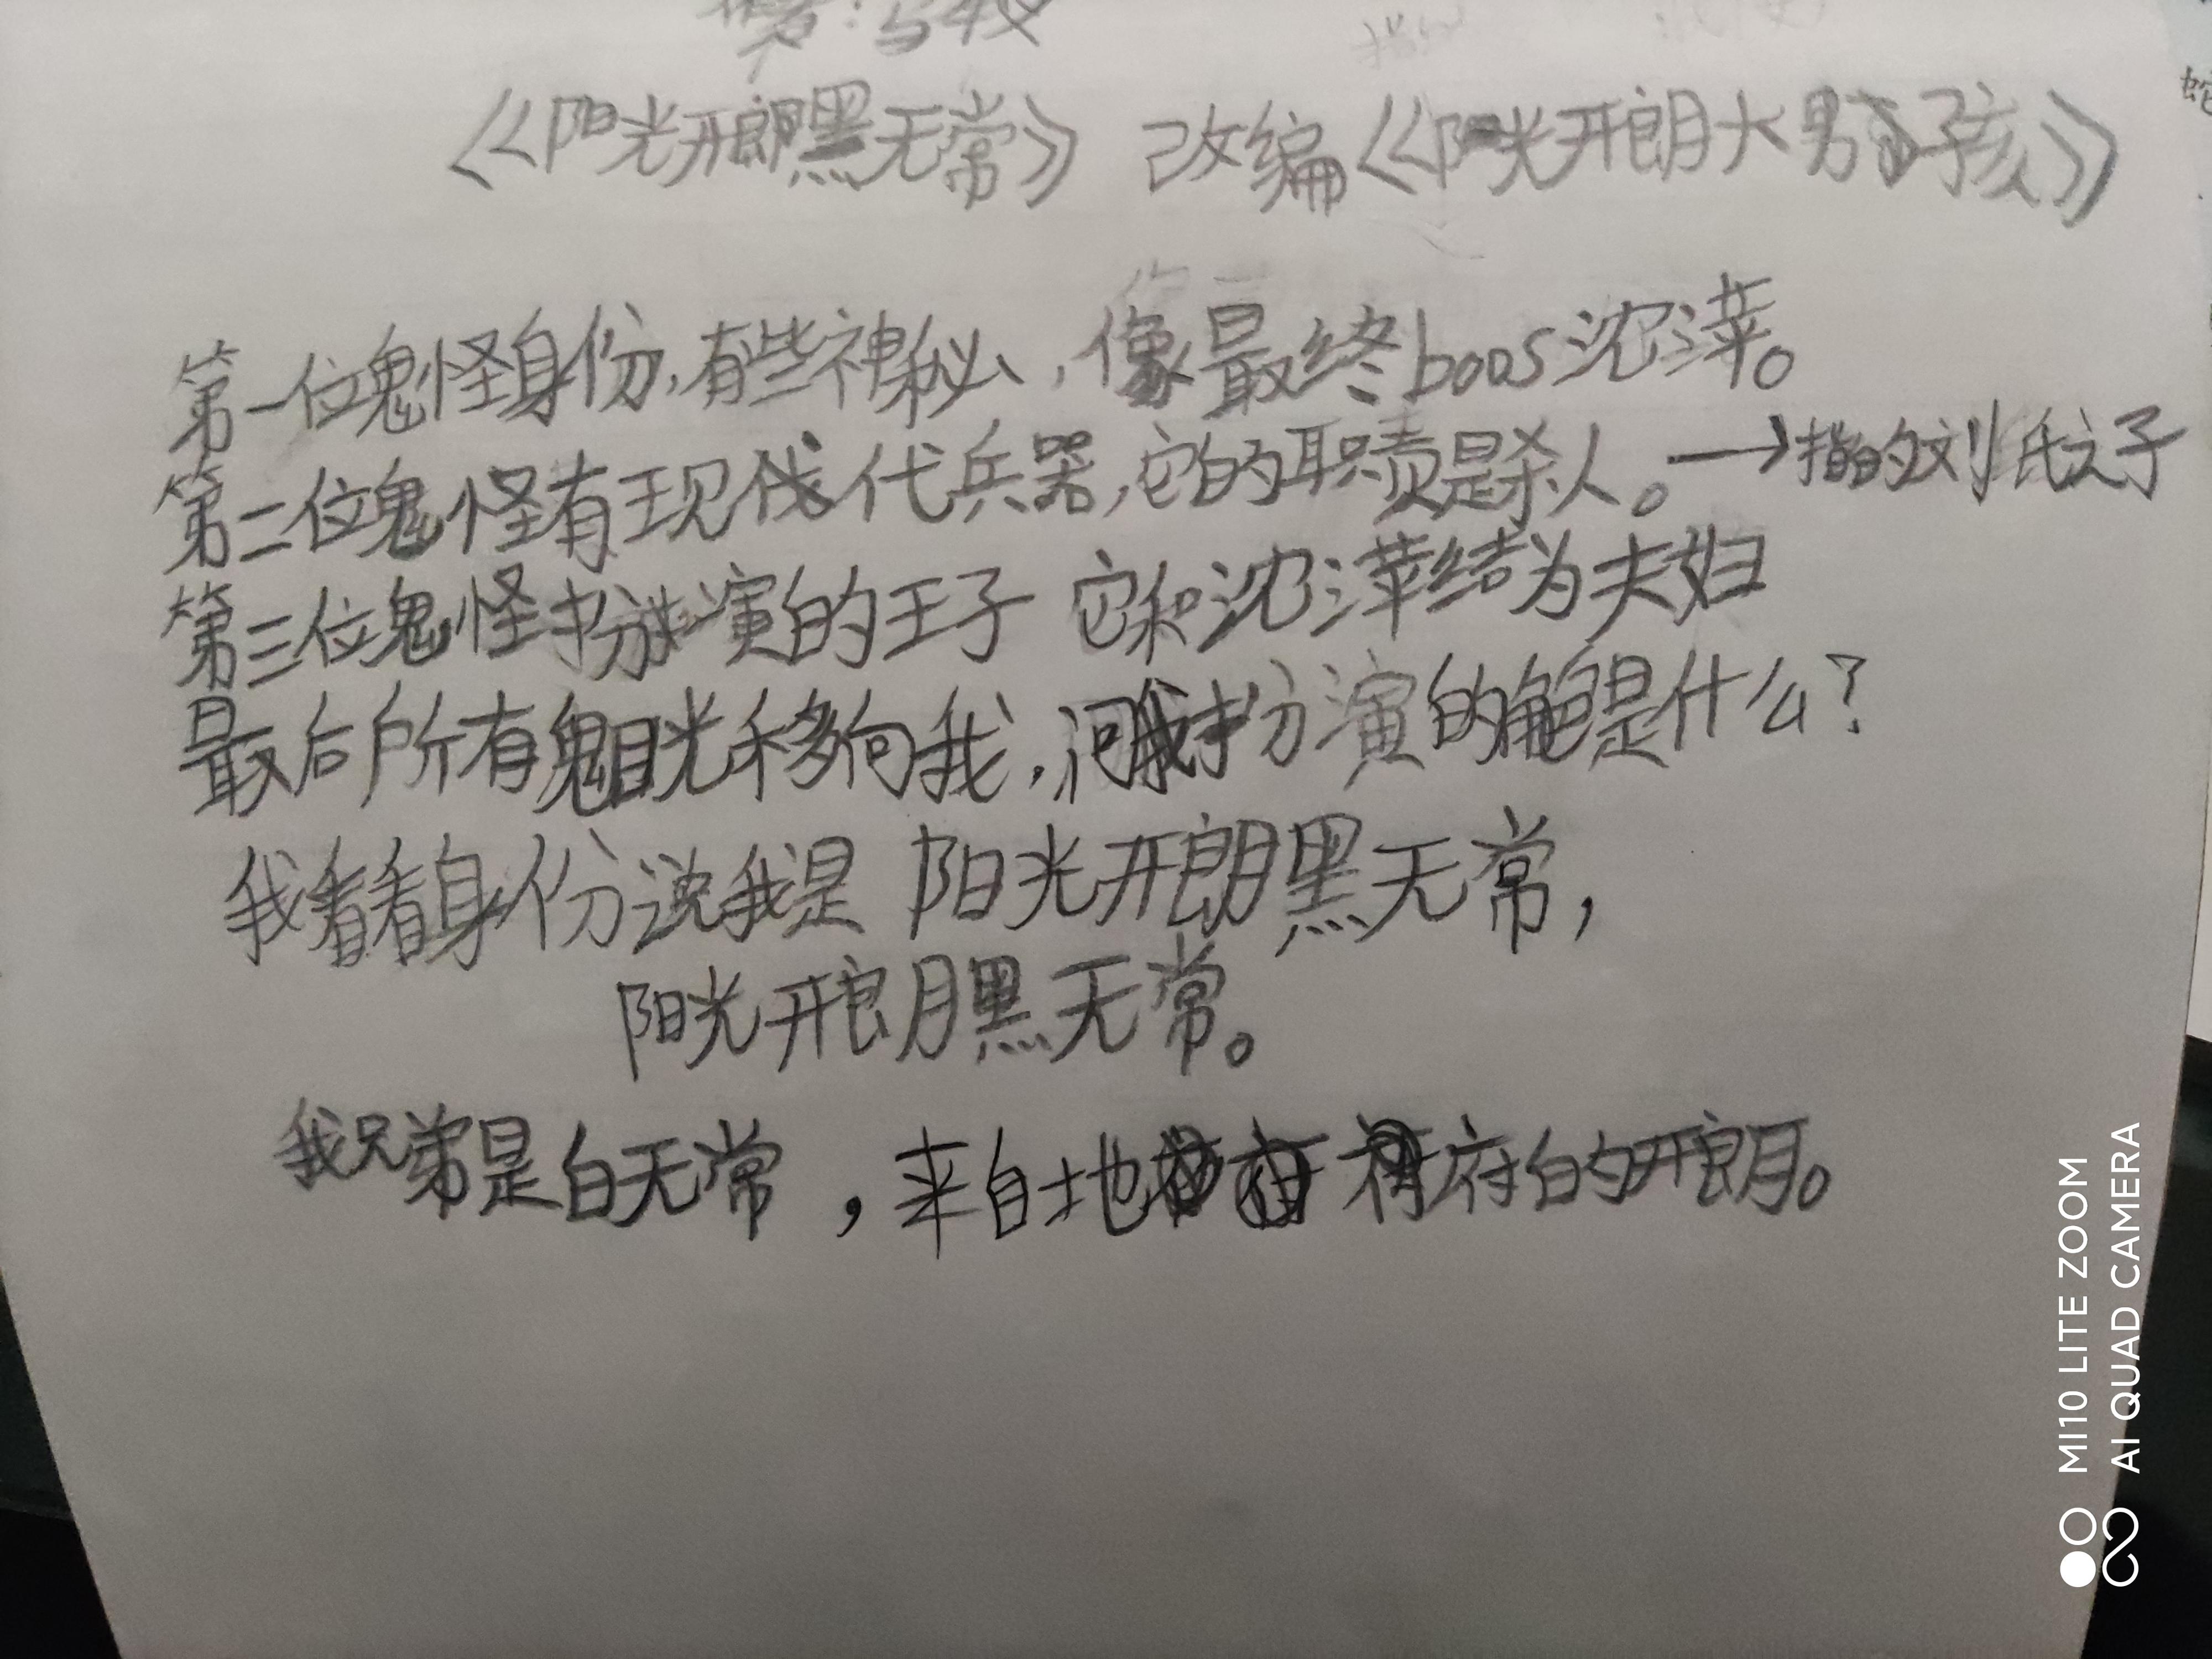 《阳光开朗黑无常》 改编《阳光开朗大男孩》
第一位鬼怪身份,有些神秘,像最终boos沈萍。
第二位鬼怪有现代兵器,它的职责是杀人。→指的刘氏之子
第三位鬼怪扮演的王子 它和沈萍结为夫妇
最后所有鬼目光移向我,问我扮演的角色是什么?
我看看身份说我是 阳光开朗黑无常,
阳光开朗黑无常。
我兄弟是白无常,来自地府的开朗。
MI10 LITE ZOOM
AI QUAD CAMERA